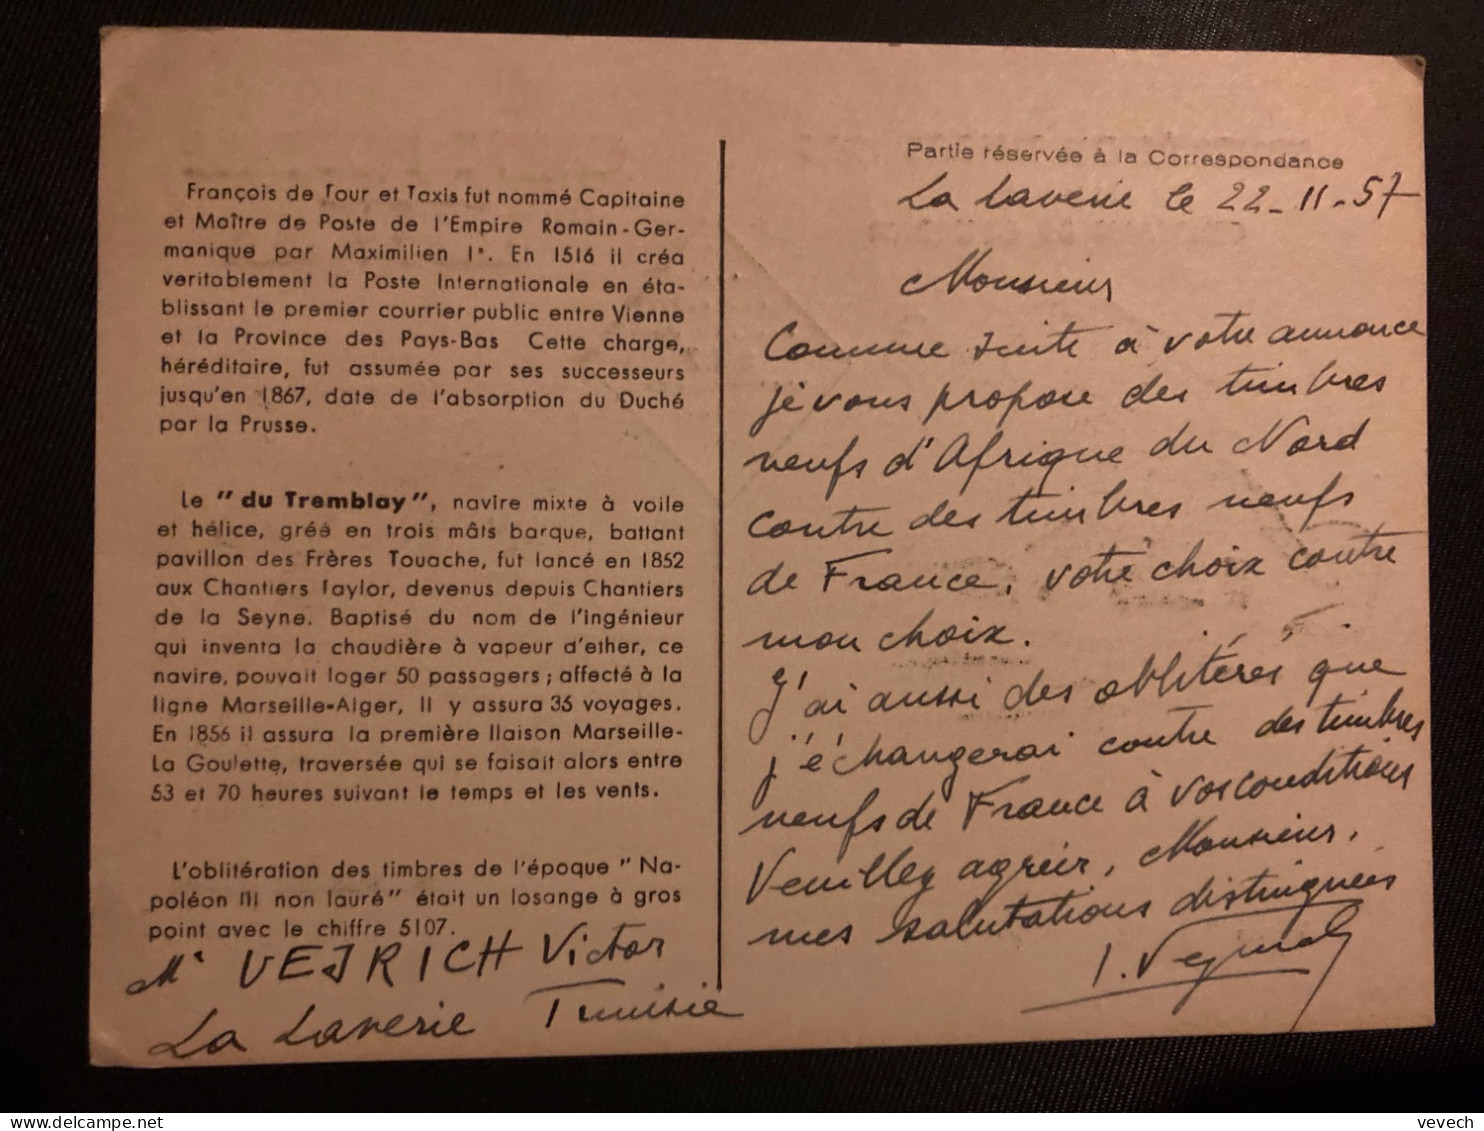 François de Tour et Taxis fut nommé Capitaine
et Maître de Poste de l'Empire Romain-Ger-
manique par Maximilien Iᵉ. En 1516 il créa
veritablement la Poste Internationale en éta-
blissant le premier courrier public entre Vienne
et la Province des Pays-Bas Cette charge,
héréditaire, fut assumée par ses successeurs
jusqu'en 1867, date de l'absorption du Duché
par la Prusse.
Le "du Tremblay", navire mixte à voile
et hélice, gréé en trois mâts barque, battant
pavillon des Frères Touache, fut lancé en 1852
aux Chantiers Taylor, devenus depuis Chantiers
de la Seyne. Baptisé du nom de l'ingénieur
qui inventa la chaudière à vapeur d'ether, ce
navire, pouvait loger 50 passagers ; affecté à la
ligne Marseille-Alger, Il y assura 36 voyages.
En 1856 il assura la première liaison Marseille-
La Goulette, traversée qui se faisait alors entre
53 et 70 heures suivant le temps et les vents.
L'oblitération des timbres de l'époque " Na-
poléon III non lauré" était un losange à gros
point avec le chiffre 5107.
Mʳ VEJRICH Victor
La Laverie Tunisie
Partie réservée à la Correspondance
La Laverie le 22-11-57
Monsieur
Comme suite à votre annonce
je vous propose des timbres
neufs d'Afrique du Nord
contre des timbres neufs
de France, votre choix contre
mon choix.
J'ai aussi des oblitérés que
j'échangerai contre des timbres
neufs de France à vos conditions
Veuillez agréer, Monsieur,
mes salutations distinguées
vevech